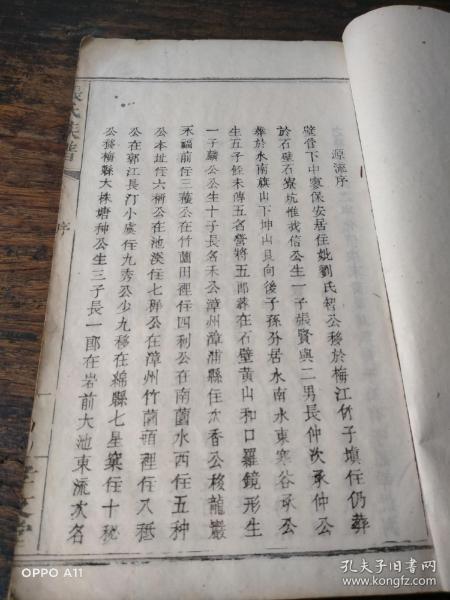 源流序
壁昔下中寮保安居住妣劉氏智公移於梅江竹子填住仍葬
於石壁石寮坑惟我信公生一子張賢與二男長仲次承仲公
葬於水南旗山下坤山艮向後子孫分居水南水東寒谷承公
生五子侄未傳五名營將五郎葬在石壁黃山和口羅鏡形生
一子麟公公生十子長名禾公漳州漳浦縣住次香公移龍巖
永福前住三穫公在竹薗田裡住四利公在南薗水西住五种
公本址住六稱公在池溪住七穉公在漳州竹薗頭裡住八秪
公在鄞江長汀小處住九秀公少九移在綿縣七星寨住十秘
公發梅縣大株塘种公生三子長一郎在岩前大池東流次名
張氏族譜
序
OPPO A11
孔夫子旧书网
www.kongfz.com